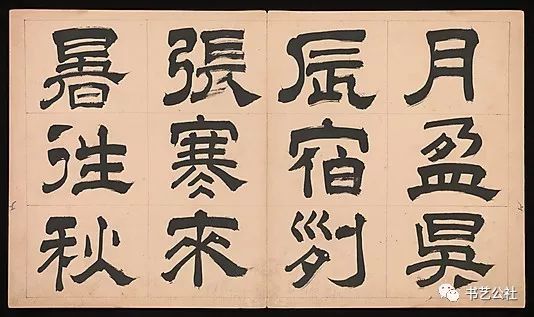 月盈昃
辰宿列
張寒來
暑往秋
书艺公社